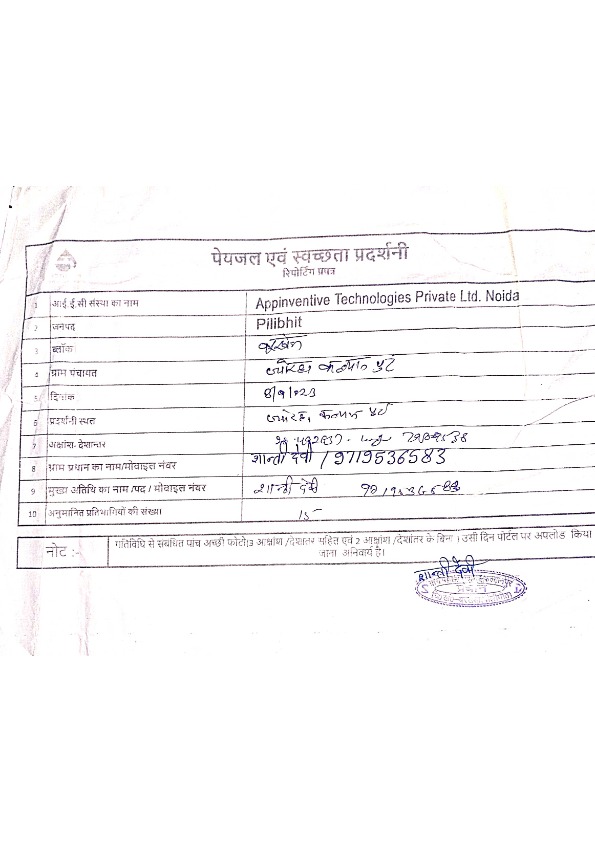 पेयजल एवं स्वच्छता प्रदर्शनी
रिपोर्टिंग प्रपत्र
1 आई.ई.सी संस्था का नाम Appinventive Technologies Private Ltd. Noida
2 जनपद Pilibhit
3 ब्लॉक
4 ग्राम पंचायत
5 दिनांक 8/9/2023
6 प्रदर्शनी स्थल
7 अक्षांश- देशान्तर
8 ग्राम प्रधान का नाम/मोबाइल नंबर शान्ती देवी / 9719536583
9 मुख्य अतिथि का नाम /पद / मोबाइल नंबर शान्ती देवी
10 अनुमानित प्रतिभागियों की संख्या 15
नोट :- गतिविधि से संबंधित पांच अच्छी फोटो(3 आक्षांश /देशांतर सहित एवं 2 आक्षांश /देशांतर के बिना ) उसी दिन पोर्टल पर अपलोड किया
जाना अनिवार्य है।
शान्ती देवी